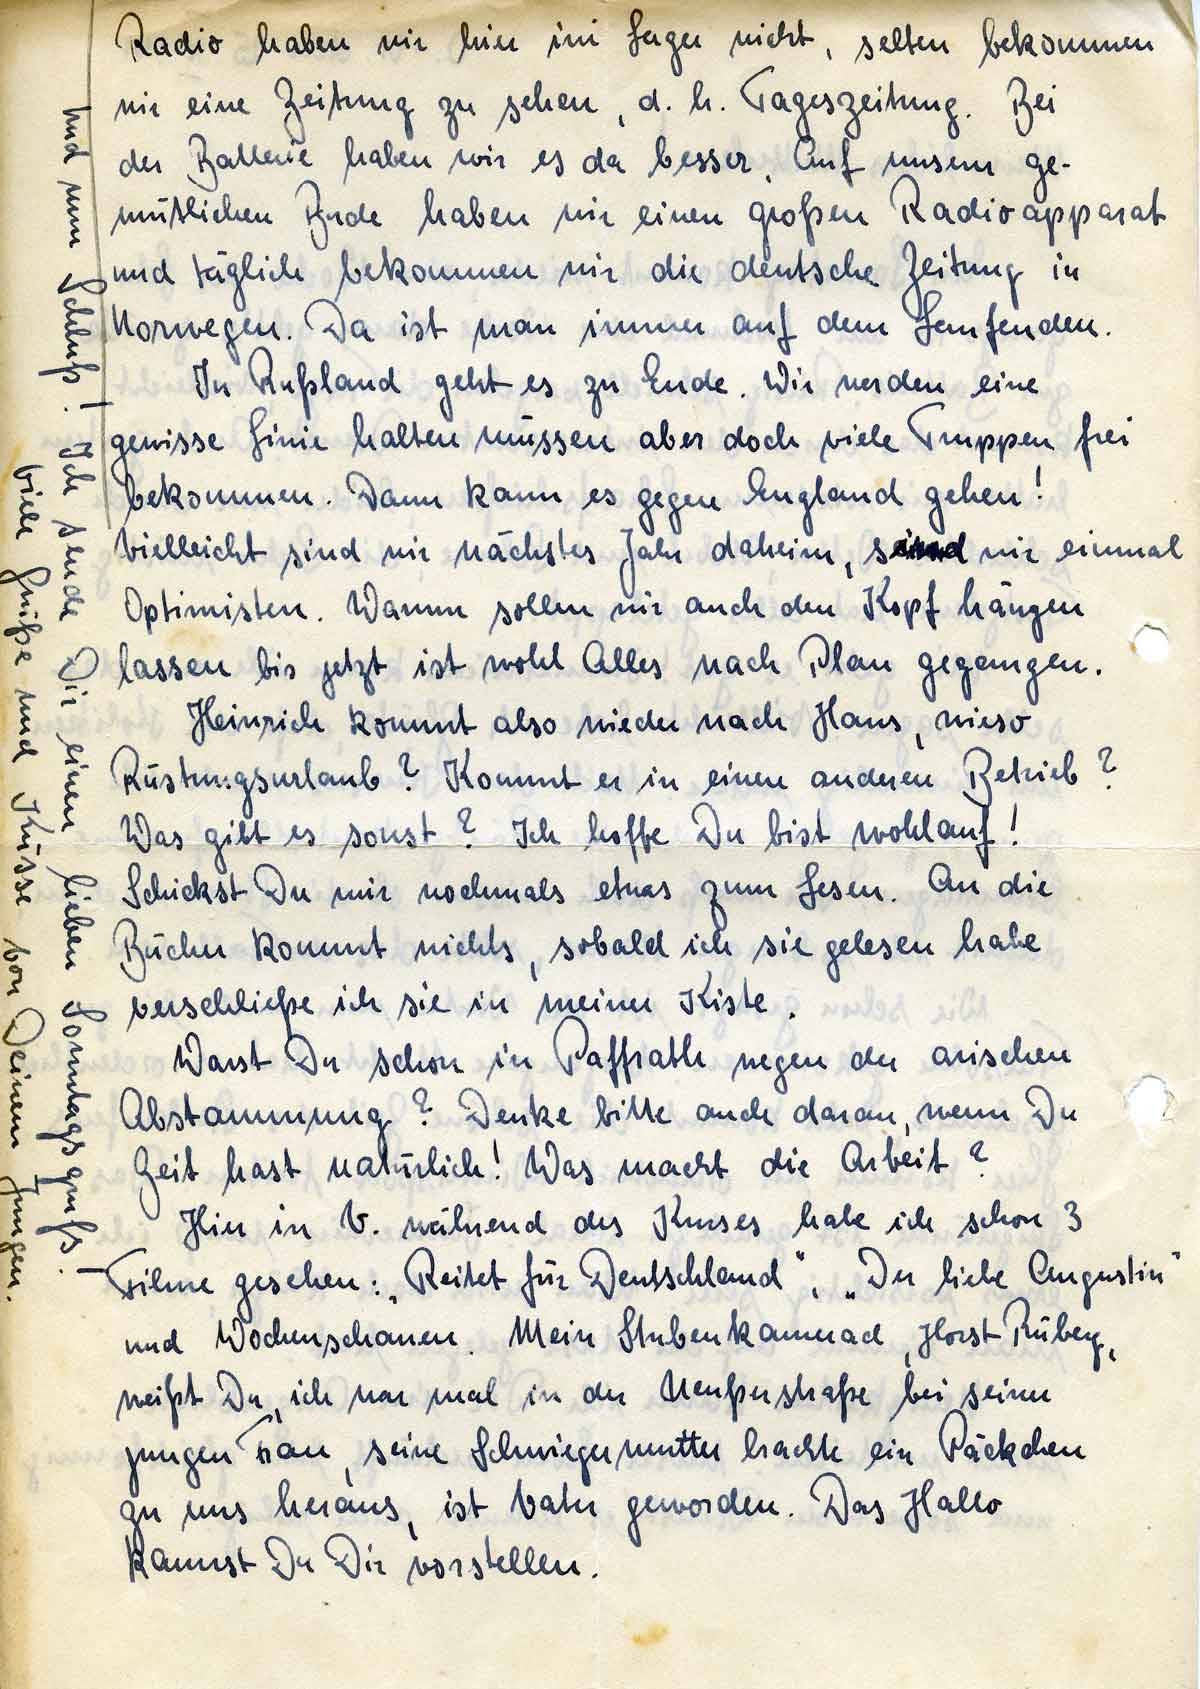 Radio haben wir hier im Lager nicht, selten bekommen
wir eine Zeitung zu sehen, d. h. Tageszeitung. Bei
der Batterie haben wir es da besser. Auf unserer ge-
mütlichen Bude haben wir einen großen Radioapparat
und täglich bekommen wir die deutsche Zeitung in
Norwegen. Da ist man immer auf dem Laufenden.
In Rußland geht es zu Ende. Wir werden eine
gewisse Linie halten müssen aber doch viele Truppen frei
bekommen. Dann kann es gegen England gehen!
Vielleicht sind wir nächstes Jahr daheim, sind wir einmal
Optimisten. Warum sollen wir auch den Kopf hängen
lassen bis jetzt ist wohl Alles nach Plan gegangen.
Heinrich kommt also wieder nach Haus, wieso
Rüstungsurlaub? Kommt er in einen anderen Betrieb?
Was gibt es sonst? Ich hoffe Du bist wohlauf!
Schickst Du mir nochmals etwas zum Lesen. An die
Bücher kommt nichts, sobald ich sie gelesen habe
verschließe ich sie in meiner Kiste.
Warst Du schon in Paffrath wegen der arischen
Abstammung? Denke bitte auch daran, wenn Du
Zeit hast natürlich! Was macht die Arbeit?
Hier in V. während des Kurses habe ich schon 3
Filme gesehen: „Reitet für Deutschland", „Der liebe Augustin"
und Wochenschauen. Mein Stubenkamerad, Horst Rüberg,
weißt Du, ich war mal in der Neußerstraße bei seiner
jungen Frau, seine Schwiegermutter brachte ein Päckchen
zu uns heraus, ist Vater geworden. Das Hallo
kannst Du Dir vorstellen.
Und nun Schluß! Ich sende Dir einen lieben Sonntagsgruß!
Viele Grüße und Küsse von Deinem Jungen.